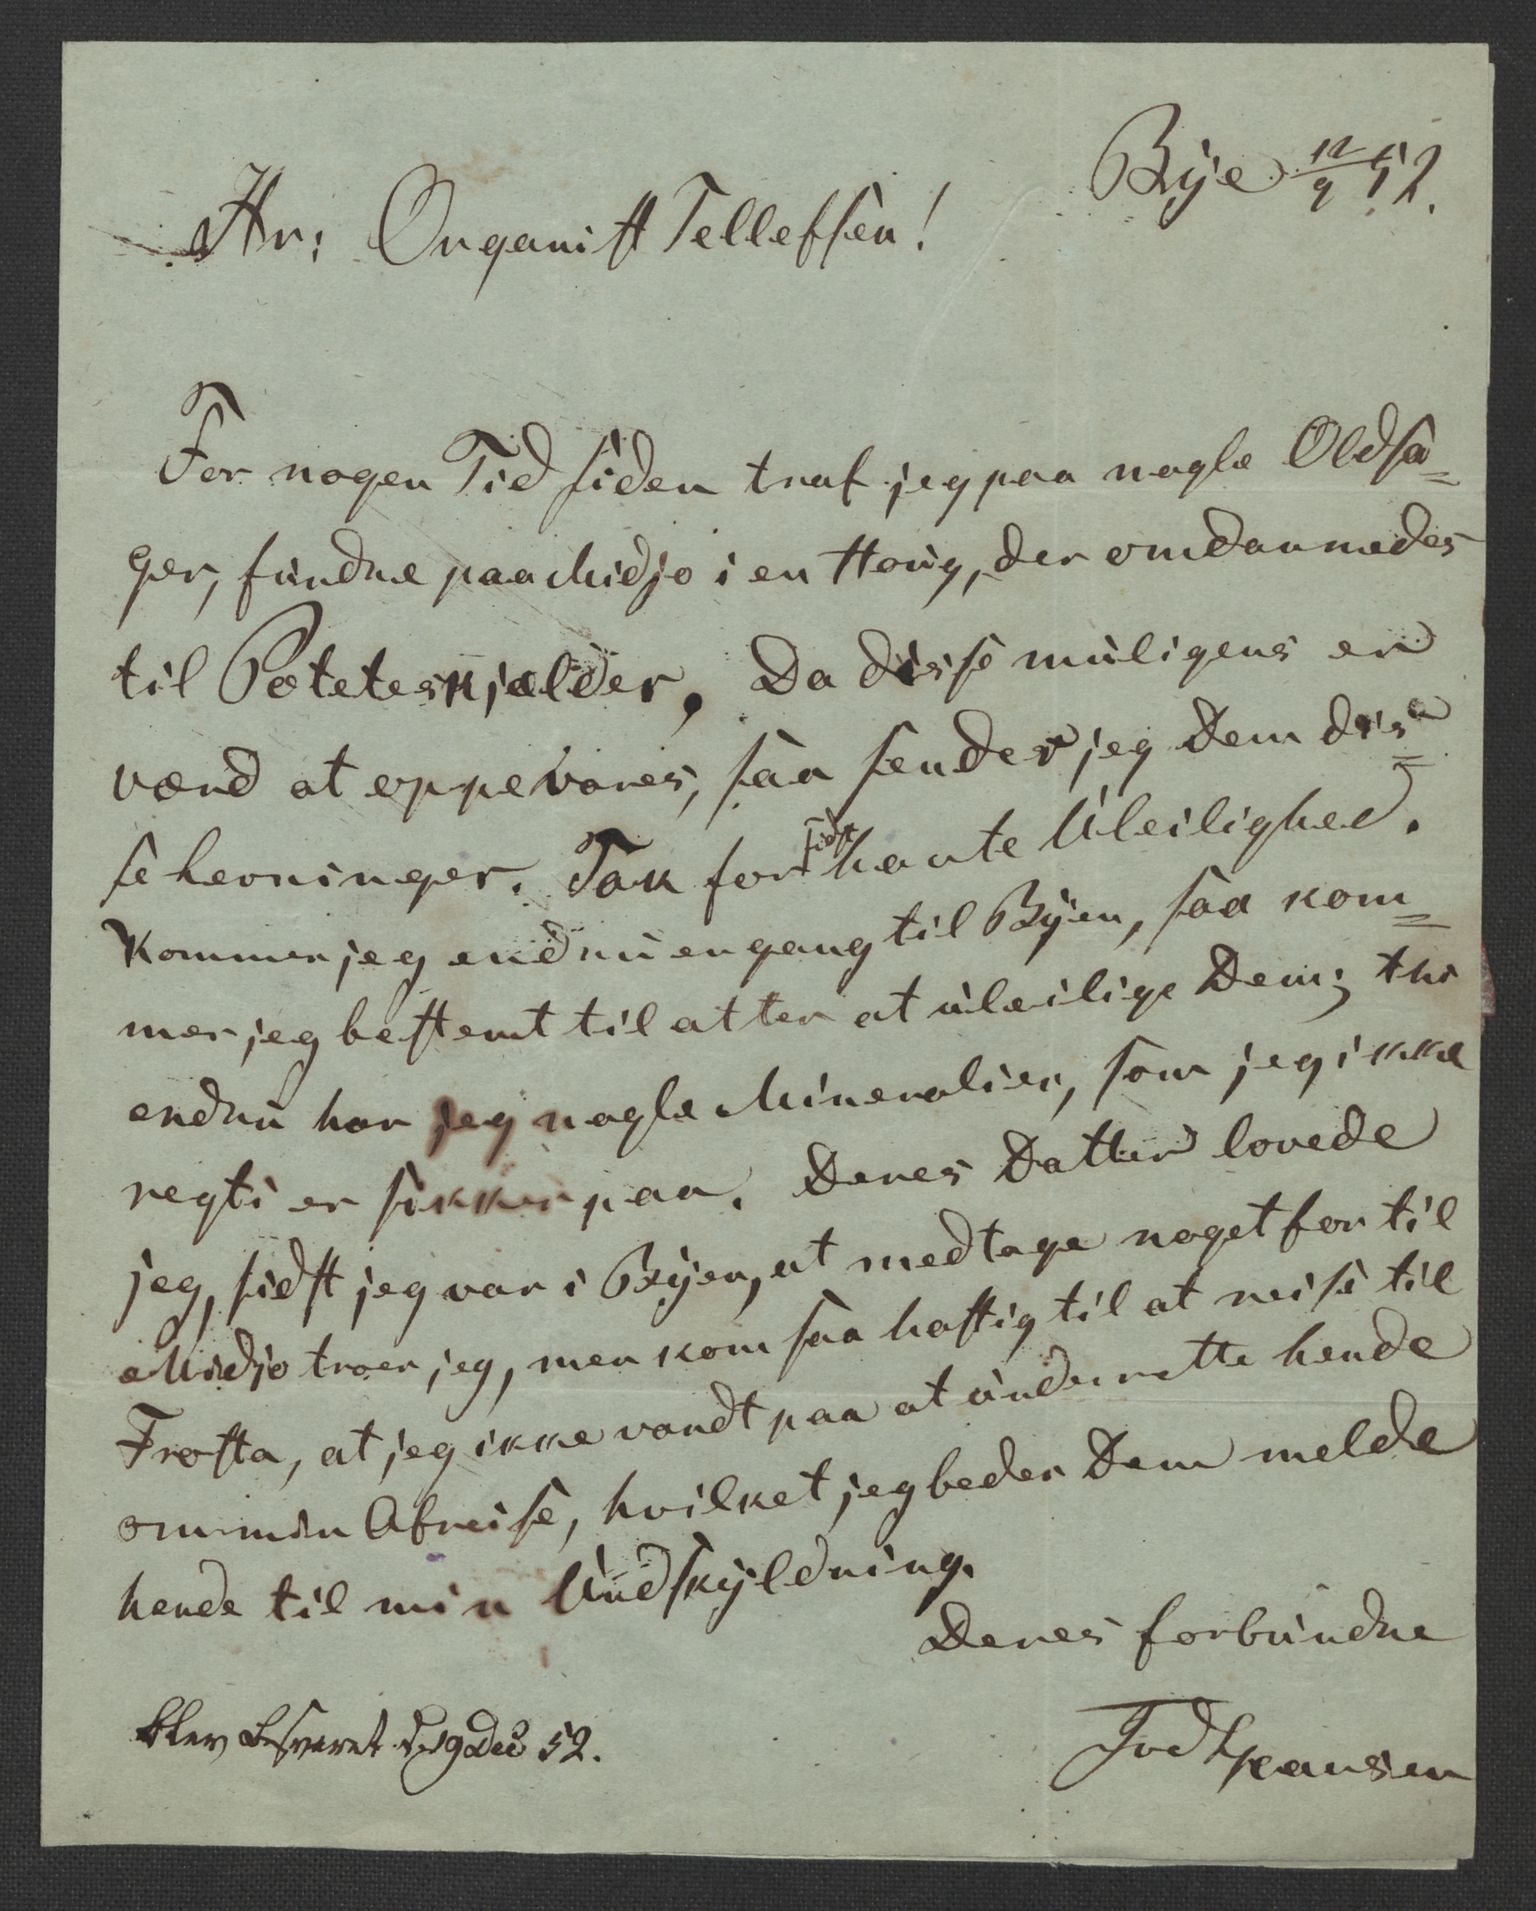 Bye 12/9 52.
Hr: Organist Tellefsen!
For nogen Tid siden traf jeg paa nogle Oldsa=
ger, fundne paa Midjo i en Houg, der omdannedes
til Poteteskjælder. Da disse muligens er
værd at oppevares, saa sender jeg Dem dis=
se levninger. Tak for sidst havte Uleilighed.
Kommer jeg endnu engang til Byen, saa kom=
mer jeg bestemt til atter at uleilige Dem; thi
endnu har jeg nogle Mineralier, som jeg ikke
regti er sikker paa. Deres Datter lovede
jeg, sidst jeg var i Byen, at medtage noget for til
Midjo troer jeg, men kom saa hastig til at reise til
Frosta, at jeg ikke vandt paa at underrette hende
om min Afreise, hvilket jeg beder Dem melde
hende til min Undskyldning.
Deres forbundne
Blev Besvaret d. 19 Dec 52.